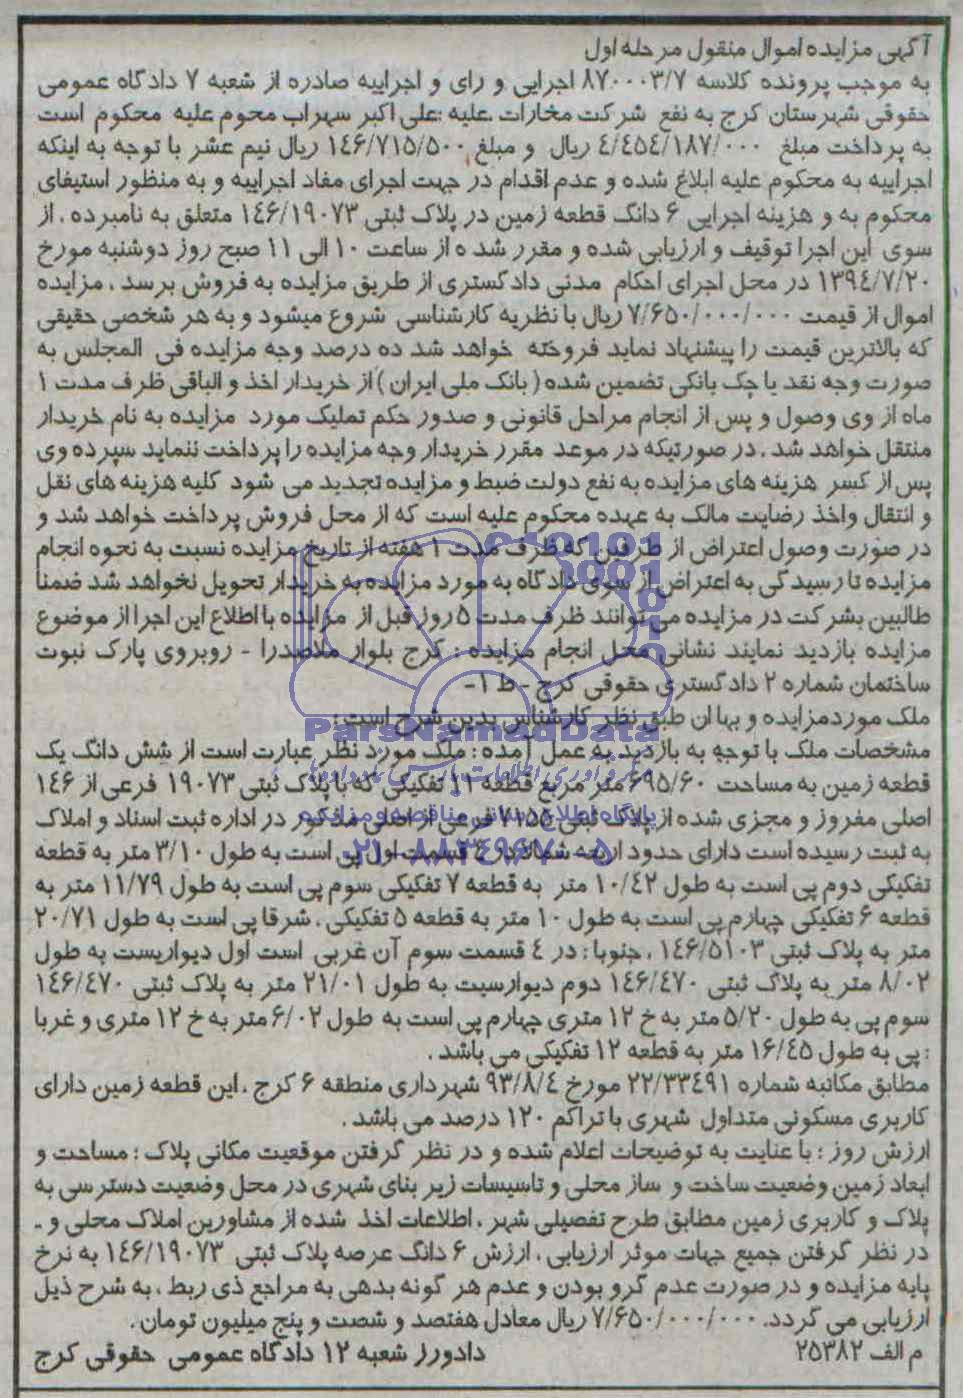 آگهی مزایده اموال منقول مرحله اول
به موجب پرونده کلاسه ۸۷۰۰۰۳/۷ اجرایی و رای و اجراییه صادره از شعبه ۷ دادگاه عمومی
حقوقی شهرستان کرج به نفع شرکت مخارات ،علیه :علی اکبر سهراب محوم علیه محکوم است
به پرداخت مبلغ ۴/۴۵۴/۱۸۷/۰۰۰ ریال و مبلغ ۱۴۶/۷۱۵/۵۰۰ ریال نیم عشر با توجه به اینکه
اجراییه به محکوم علیه ابلاغ شده و عدم اقدام در جهت اجرای مفاد اجراییه و به منظور استیفای
محکوم به و هزینه اجرایی ۶ دانگ قطعه زمین در پلاک ثبتی ۱۴۶/۱۹۰۷۳ متعلق به نامبرده ، از
سوی این اجرا توقیف و ارزیابی شده و مقرر شد ه از ساعت ۱۰ الی ۱۱ صبح روز دوشنبه مورخ
۱۳۹۴/۷/۲۰ در محل اجرای احکام مدنی دادگستری از طریق مزایده به فروش برسد ، مزایده
اموال از قیمت ۷/۶۵۰/۰۰۰/۰۰۰ ریال با نظریه کارشناسی شروع میشود و به هر شخصی حقیقی
که بالاترین قیمت را پیشنهاد نماید فروخته خواهد شد ده درصد وجه مزایده فی المجلس به
صورت وجه نقد یا چک بانکی تضمین شده ( بانک ملی ایران ) از خریدار اخذ و الباقی ظرف مدت ۱
ماه از وی وصول و پس از انجام مراحل قانونی و صدور حکم تملیک مورد مزایده به نام خریدار
منتقل خواهد شد . در صورتیکه در موعد مقرر خریدار وجه مزایده را پرداخت ننماید سپرده وی
پس از کسر هزینه های مزایده به نفع دولت ضبط و مزایده تجدید می شود کلیه هزینه های نقل
و انتقال واخذ رضایت مالک به عهده محکوم علیه است که از محل فروش پرداخت خواهد شد و
در صورت وصول اعتراض از طرفین که ظرف مدت ۱ هفته از تاریخ مزایده نسبت به نحوه انجام
مزایده تا رسیدگی به اعتراض از سوی دادگاه به مورد مزایده به خریدار تحویل نخواهد شد ضمنا
طالبین بشرکت در مزایده می توانند ظرف مدت ۵ روز قبل از مزایده با اطلاع این اجرا از موضوع
مزایده بازدید نمایند نشانی محل انجام مزایده : کرج بلوار ملاصدرا - روبروی پارک نبوت
ساختمان شماره ۲ دادگستری حقوقی کرج - ط ۱-
ملک موردمزایده و بها ان طبق نظر کارشناس بدین شرح است :
ParsNamadData
مشخصات ملک با توجه به بازدید به عمل آمده : ملک مورد نظر عبارت است از شش دانگ یک
قطعه زمین به مساحت ۶۹۵/۶۰ متر مربع قطعه ۱۱ تفکیکی که با پلاک ثبتی ۱۹۰۷۳ فرعی از ۱۴۶
اصلی مفروز و مجزی شده از پلاک ثبتی ۷۱۵۵ فرعی از اصلی مذکور در اداره ثبت اسناد و املاک
پایگاه اطلاع رسانی مناقصه و مزایده
به ثبت رسیده است دارای حدود اربعه شمالا در ۴ قسمت اول پی است به طول ۳/۱۰ متر به قطعه
۰۲۱-۸۸۳۴۹۶۷۰-۵
تفکیکی دوم پی است به طول ۱۰/۴۲ متر به قطعه ۷ تفکیکی سوم پی است به طول ۱۱/۷۹ متر به
قطعه ۶ تفکیکی چهارم پی است به طول ۱۰ متر به قطعه ۵ تفکیکی . شرقا پی است به طول ۲۰/۷۱
متر به پلاک ثبتی ۱۴۶/۵۱۰۳ ، جنوبا : در ۴ قسمت سوم آن غربی است اول دیواریست به طول
۸/۰۲ متر به پلاک ثبتی ۱۴۶/۴۷۰ دوم دیوارسیت به طول ۲۱/۰۱ متر به پلاک ثبتی ۱۴۶/۴۷۰
سوم پی به طول ۵/۲۰ متر به خ ۱۲ متری چهارم پی است به طول ۶/۰۲ متر به خ ۱۲ متری و غربا
: پی به طول ۱۶/۴۵ متر به قطعه ۱۲ تفکیکی می باشد .
مطابق مکاتبه شماره ۲۲/۳۳۴۹۱ مورخ ۹۳/۸/۴ شهرداری منطقه ۶ کرج ، این قطعه زمین دارای
کاربری مسکونی متداول شهری با تراکم ۱۲۰ درصد می باشد .
ارزش روز : با عنایت به توضیحات اعلام شده و در نظر گرفتن موقعیت مکانی پلاک : مساحت و
ابعاد زمین وضعیت ساخت و ساز محلی و تاسیسات زیر بنای شهری در محل وضعیت دسترسی به
پلاک و کاربری زمین مطابق طرح تفصیلی شهر ، اطلاعات اخذ شده از مشاورین املاک محلی و -
در نظر گرفتن جمیع جهات موثر ارزیابی ، ارزش ۶ دانگ عرصه پلاک ثبتی ۱۴۶/۱۹۰۷۳ به نرخ
پایه مزایده و در صورت عدم گرو بودن و عدم هر گونه بدهی به مراجع ذی ربط ، به شرح ذیل
ارزیابی می گردد. ۷/۶۵۰/۰۰۰/۰۰۰ ریال معادل هفتصد و شصت و پنج میلیون تومان .
م الف ۲۵۳۸۲ دادورز شعبه ۱۲ دادگاه عمومی حقوقی کرج